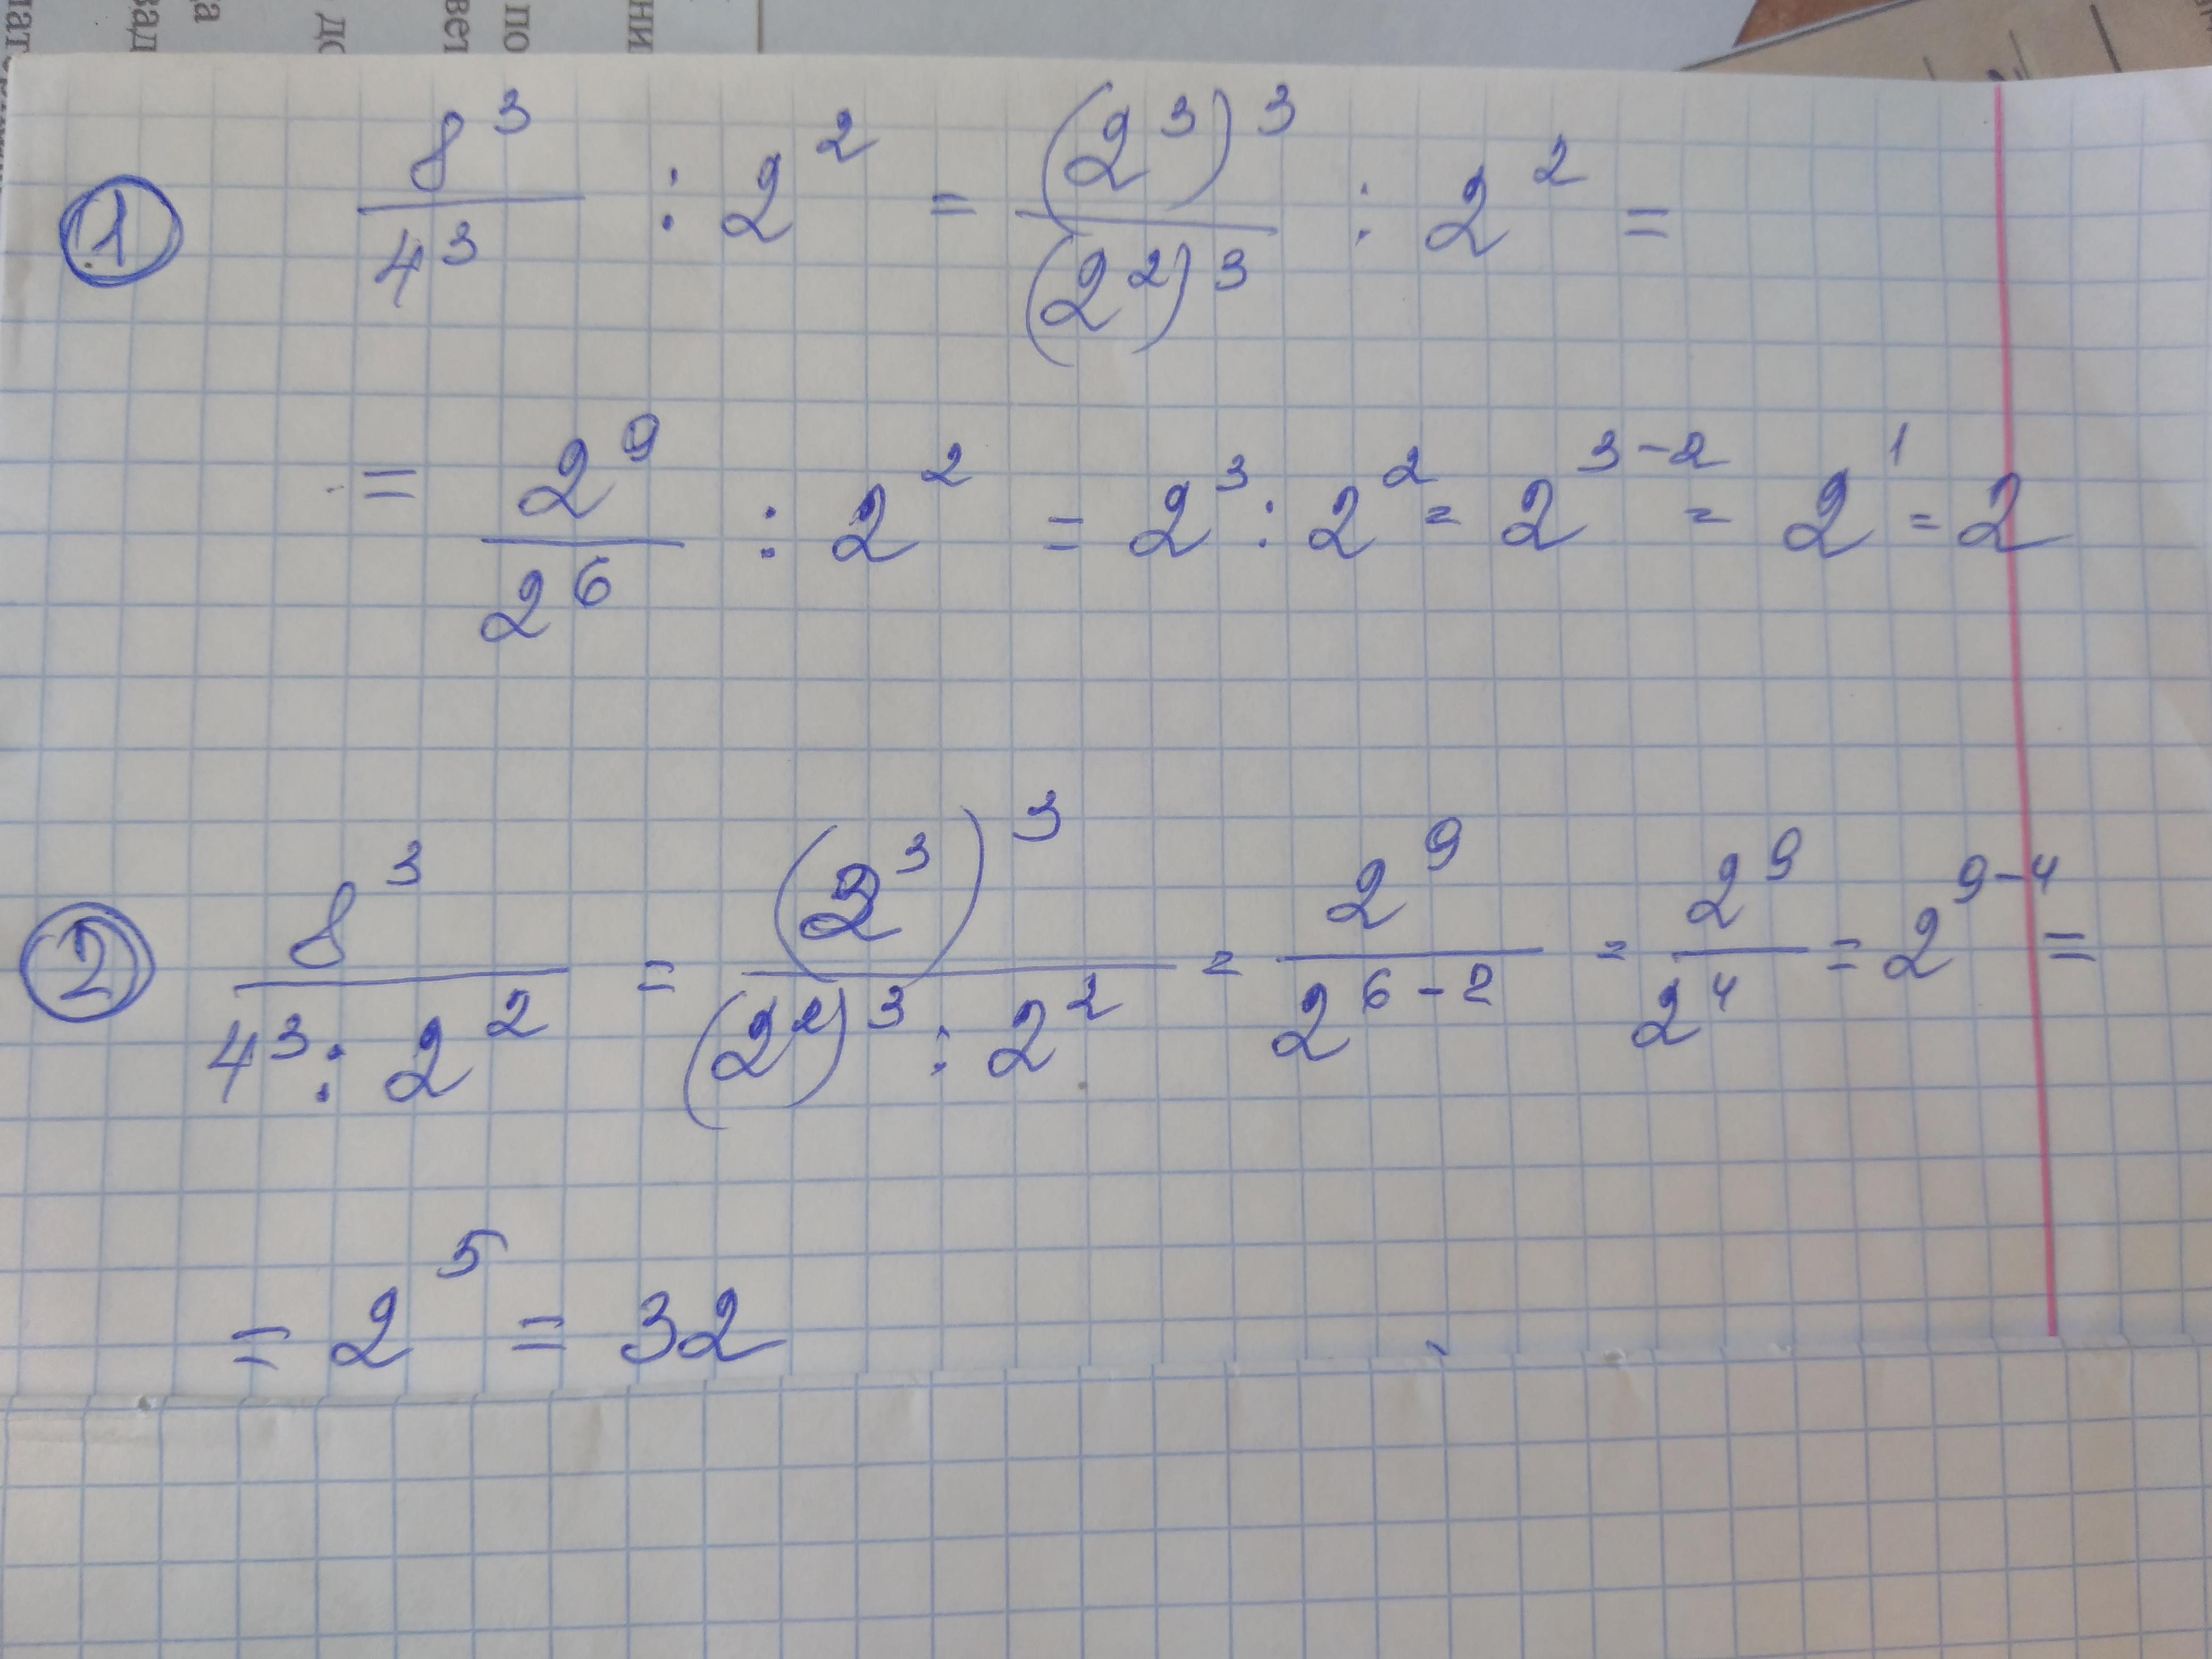 лат
вад
да
до
вет
по
ни
① 8³/4³ : 2² = (2³)³/(2²)³ : 2² =
= 2⁹/2⁶ : 2² = 2³ : 2² = 2³⁻² = 2¹ = 2
② 8³/(4³ : 2²) = (2³)³/((2²)³ : 2²) = 2⁹/2⁶⁻² = 2⁹/2⁴ = 2⁹⁻⁴ =
= 2⁵ = 32